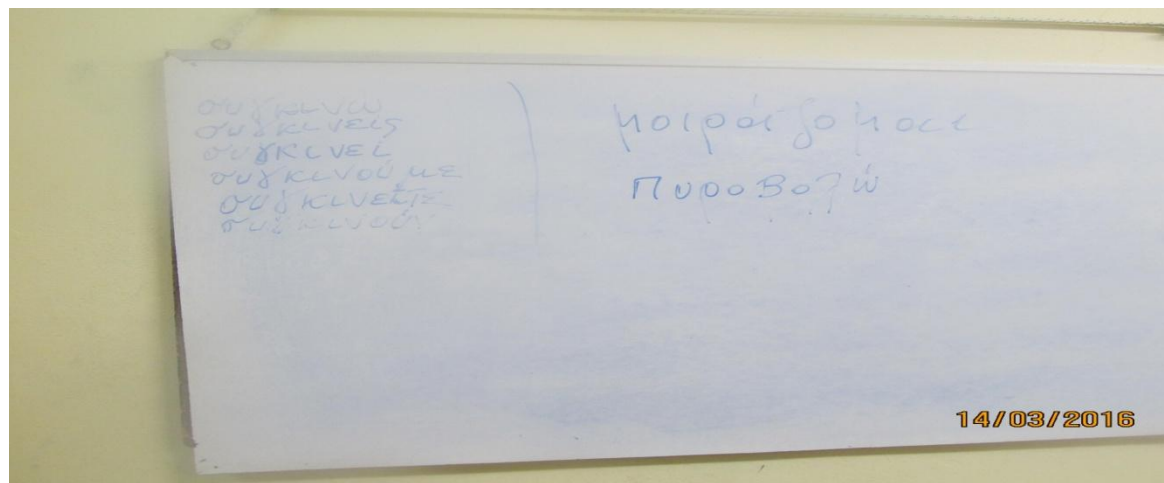 συγκινώ
συγκινείς
συγκινεί
συγκινούμε
συγκινείτε
συγκινούν
μοιράζομαι
Πυροβολώ
14/03/2016